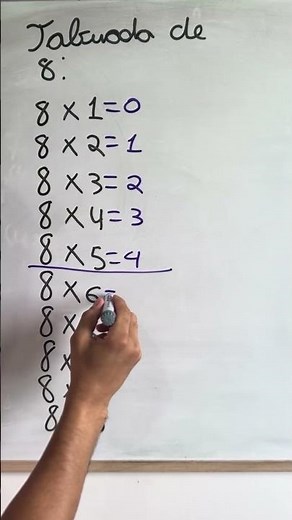 Tabuada de
8:
8 x 1 = 0
8 x 2 = 1
8 x 3 = 2
8 x 4 = 3
8 x 5 = 4
8 x 6 =
8 x
8 x
8 x
8